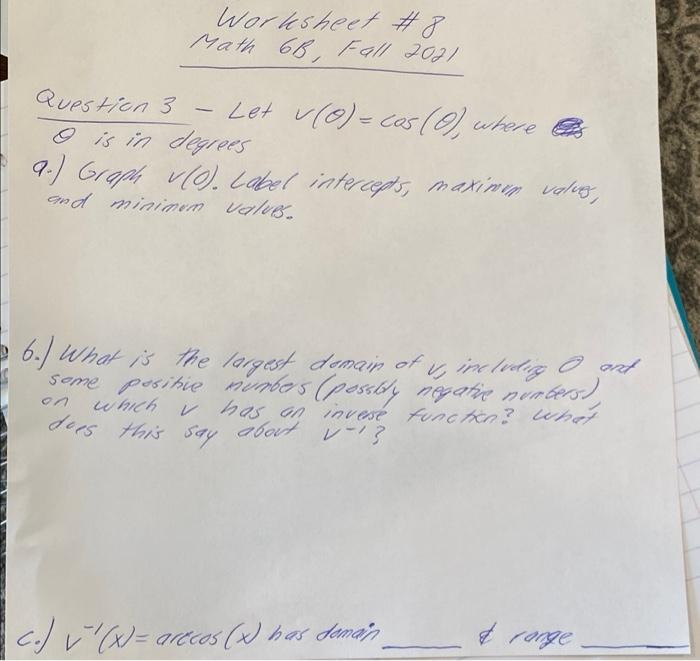 Worksheet #8
Math 6B, Fall 2021
Question 3 - Let v(θ) = cos(θ), where
θ is in degrees
a.) Graph v(θ). Label intercepts, maximum values,
and minimum values.
b.) What is the largest domain of v, including 0 and
some positive numbers (possibly negative numbers),
on which v has an inverse function? What
does this say about v⁻¹?
c.) v⁻¹(x) = arccos(x) has domain ______ & range ______